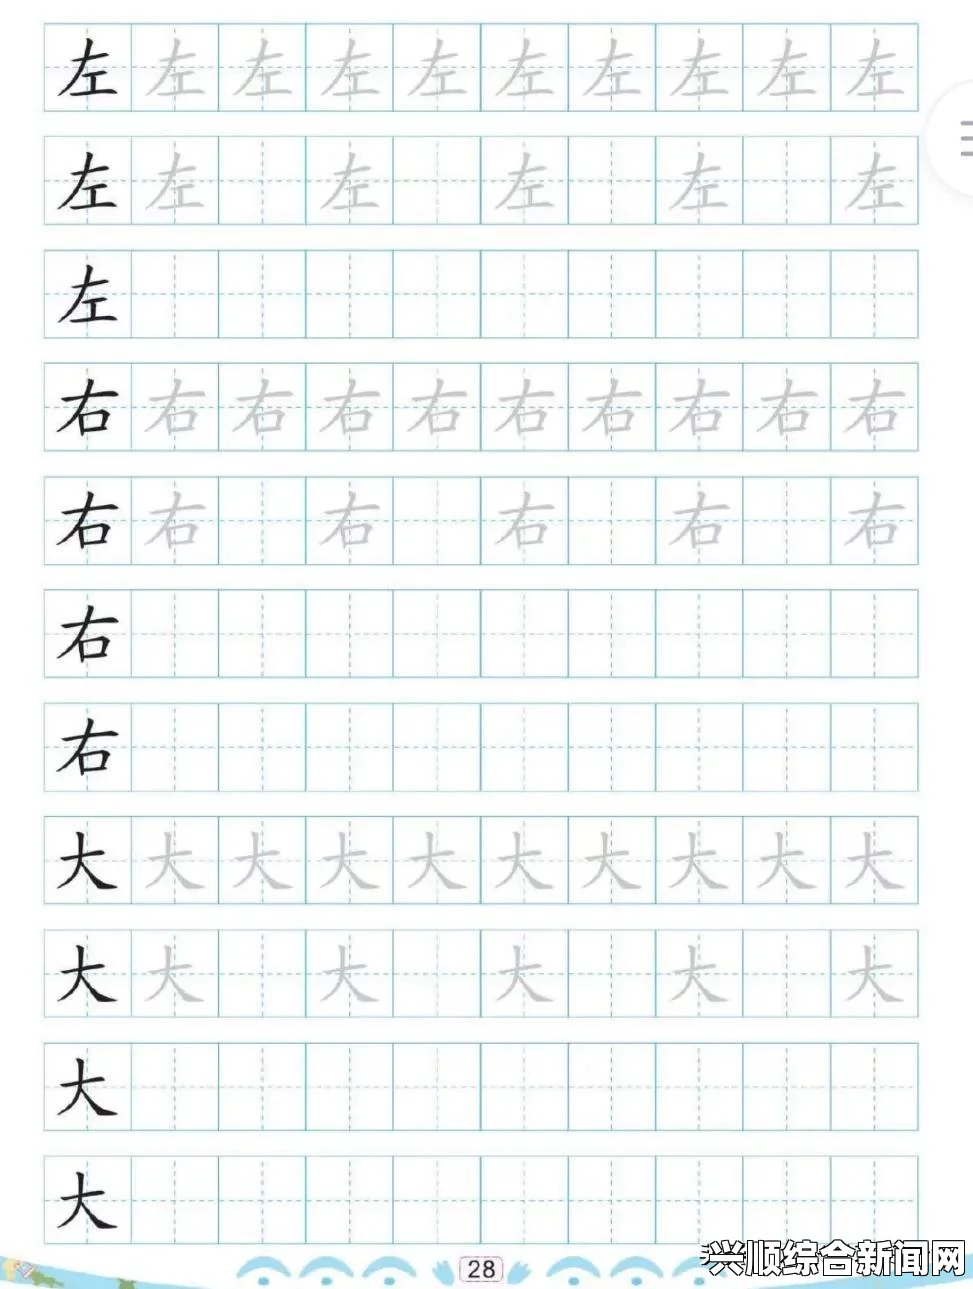 左左左左左左左左左左
左左左左左左
左
右右右右右右右右右右
右右右右右右
右
右
大大大大大大大大大大
大大大大大大
大
大
28
兴顺综合新闻网